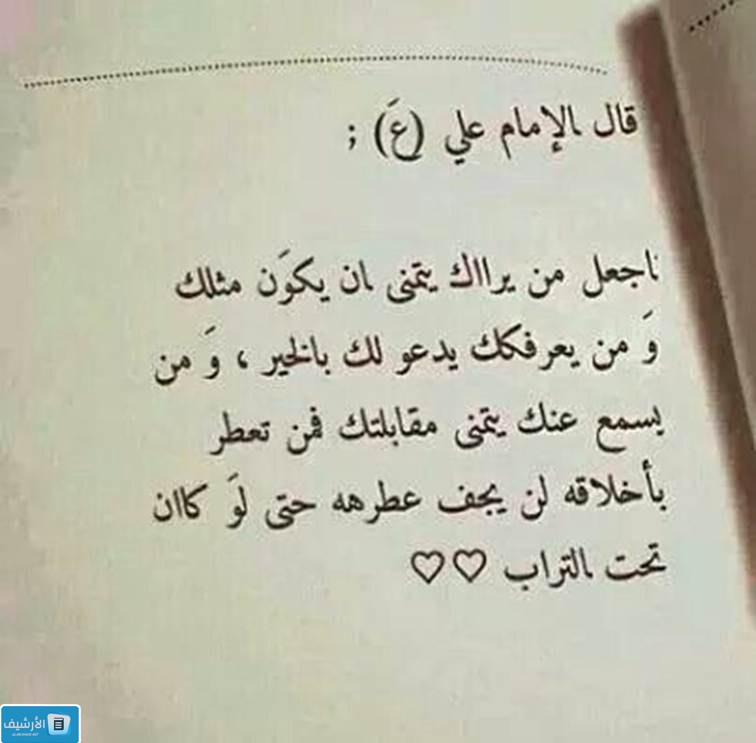 قال الإمام علي (عَ) ;
اجعل من يرااك يتمنى ان يكوَن مثلك
وَ من يعرفكك يدعو لك بالخير ، وَ من
يسمع عنك يتمنى مقابلتك فمن تعطر
بأخلاقه لن يجف عطرهه حتى لوَ كاان
تحت التراب ♡♡
الأرشيف